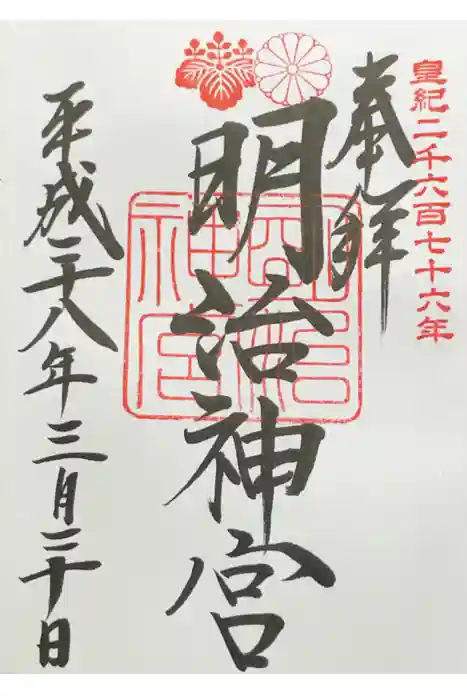 皇紀二千六百七十六年
奉拝
明治神宮
平成二十八年三月二十日